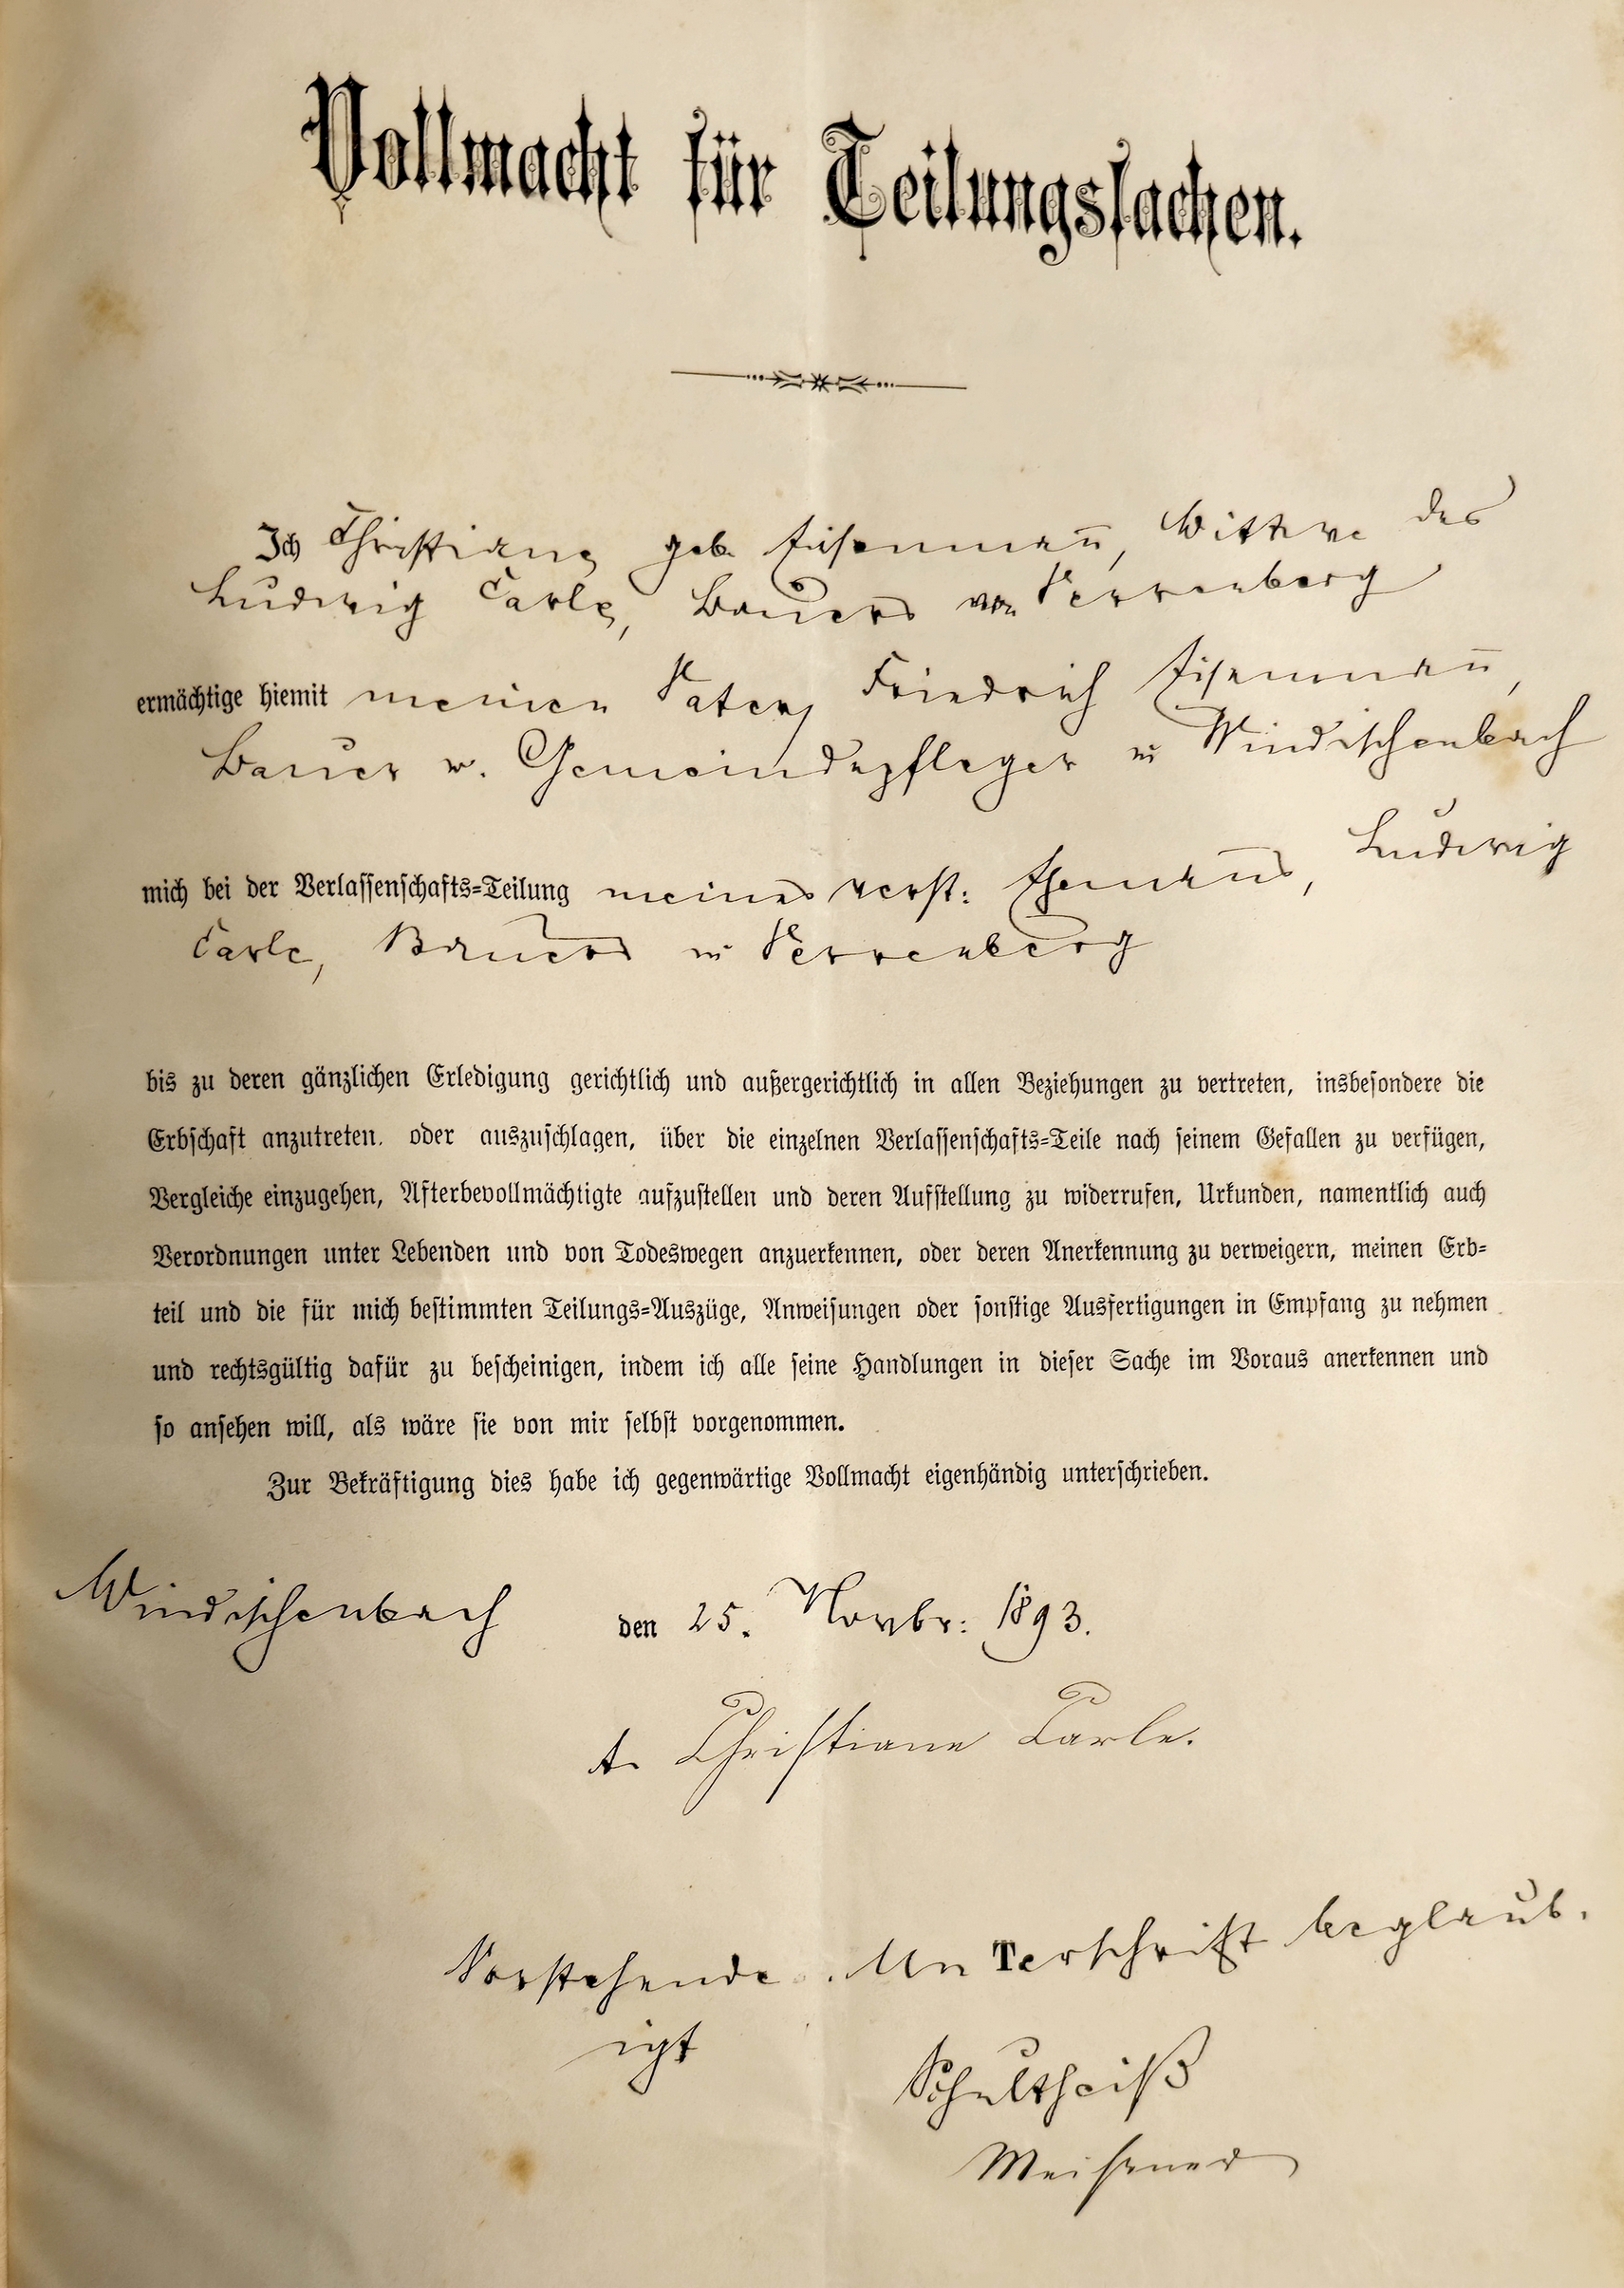 Vollmacht für Teilungssachen.
Ich Christiane geb. Eisenmann̄, Wittwe des
Ludwig Carle, Bauers von Verrenberg
ermächtige hiemit meinen Vater, Friedrich Eisenman̄,
Bauer u. Gemeindepfleger in Windischenbach
mich bei der Verlassenschafts=Teilung meines verst: Eheman̄s, Ludwig
Carle, Bauers in Verrenberg
bis zu deren gänzlichen Erledigung gerichtlich und außergerichtlich in allen Beziehungen zu vertreten, insbesondere die
Erbschaft anzutreten. oder auszuschlagen, über die einzelnen Verlassenschafts=Teile nach seinem Gefallen zu verfügen,
Vergleiche einzugehen, Afterbevollmächtigte aufzustellen und deren Aufstellung zu widerrufen, Urkunden, namentlich auch
Verordnungen unter Lebenden und von Todeswegen anzuerkennen, oder deren Anerkennung zu verweigern, meinen Erb=
teil und die für mich bestimmten Teilungs=Auszüge, Anweisungen oder sonstige Ausfertigungen in Empfang zu nehmen
und rechtsgültig dafür zu bescheinigen, indem ich alle seine Handlungen in dieser Sache im Voraus anerkennen und
so ansehen will, als wäre sie von mir selbst vorgenommen.
Zur Bekräftigung dies habe ich gegenwärtige Vollmacht eigenhändig unterschrieben.
Windischenbach den 25. Novbr: 1893.
t. Christiane Carle.
Vorstehende Unterschrift beglaub.
igt
Schultheiß